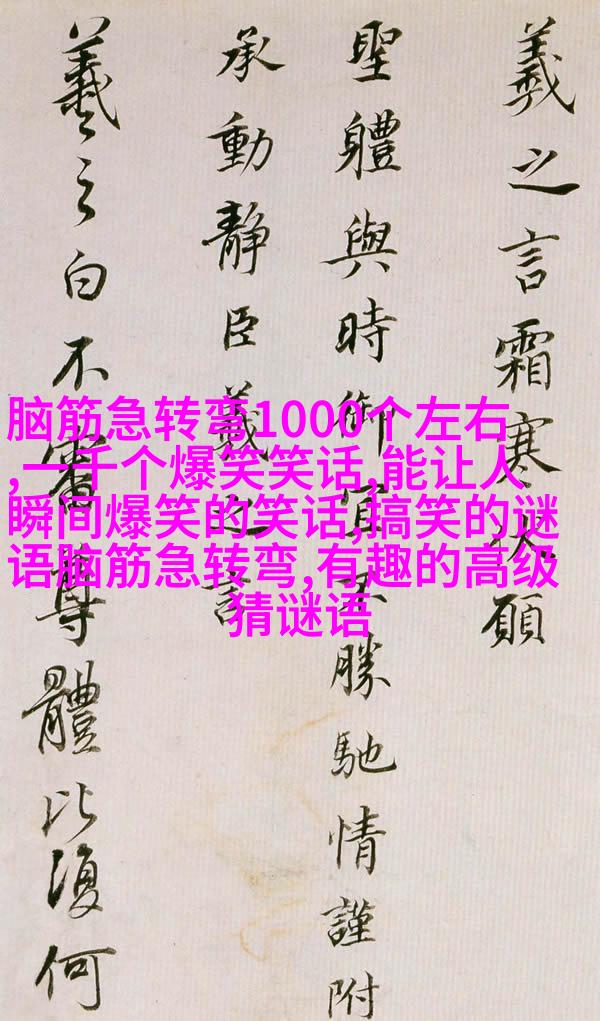 羲之言霜寒伏願
聖體與時御宜不勝馳情謹附
承動靜臣羲之言
羲之白不審尊體比復何
脑筋急转弯1000个左右
,一千个爆笑笑话,能让人
瞬间爆笑的笑话,搞笑的谜
语脑筋急转弯,有趣的高级
猜谜语